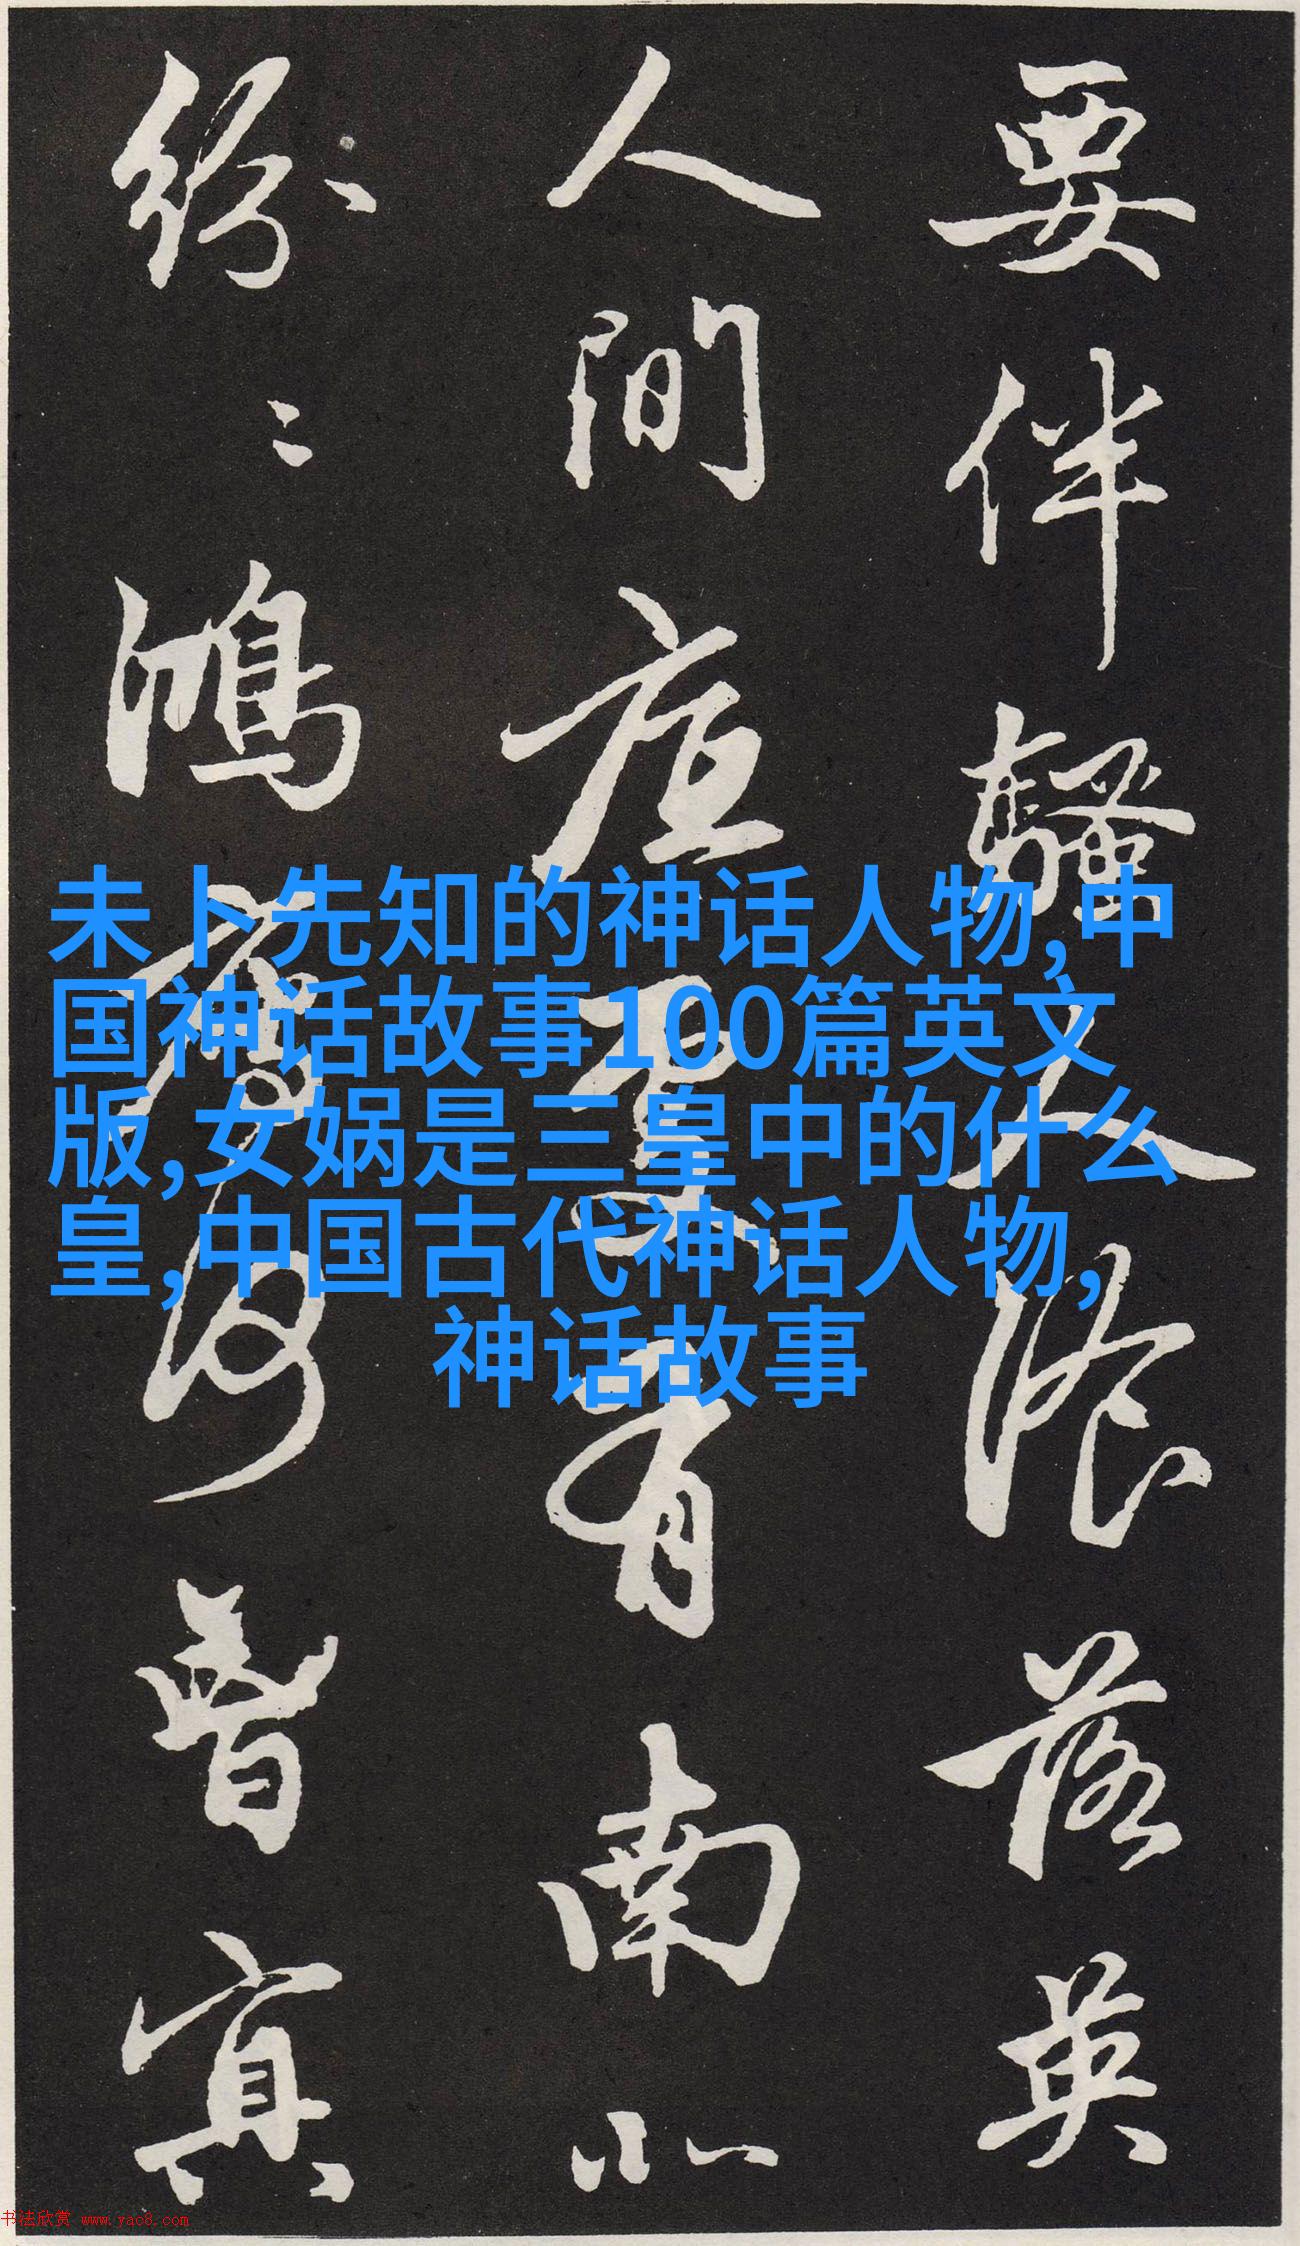 要伴騷人湌落英
人間底處有南北
紛〻鴻鴈何曾冥
未卜先知的神话人物,中
国神话故事100篇英文
版,女娲是三皇中的什么
皇,中国古代神话人物,
神话故事
书法欣赏 www.yac8.com